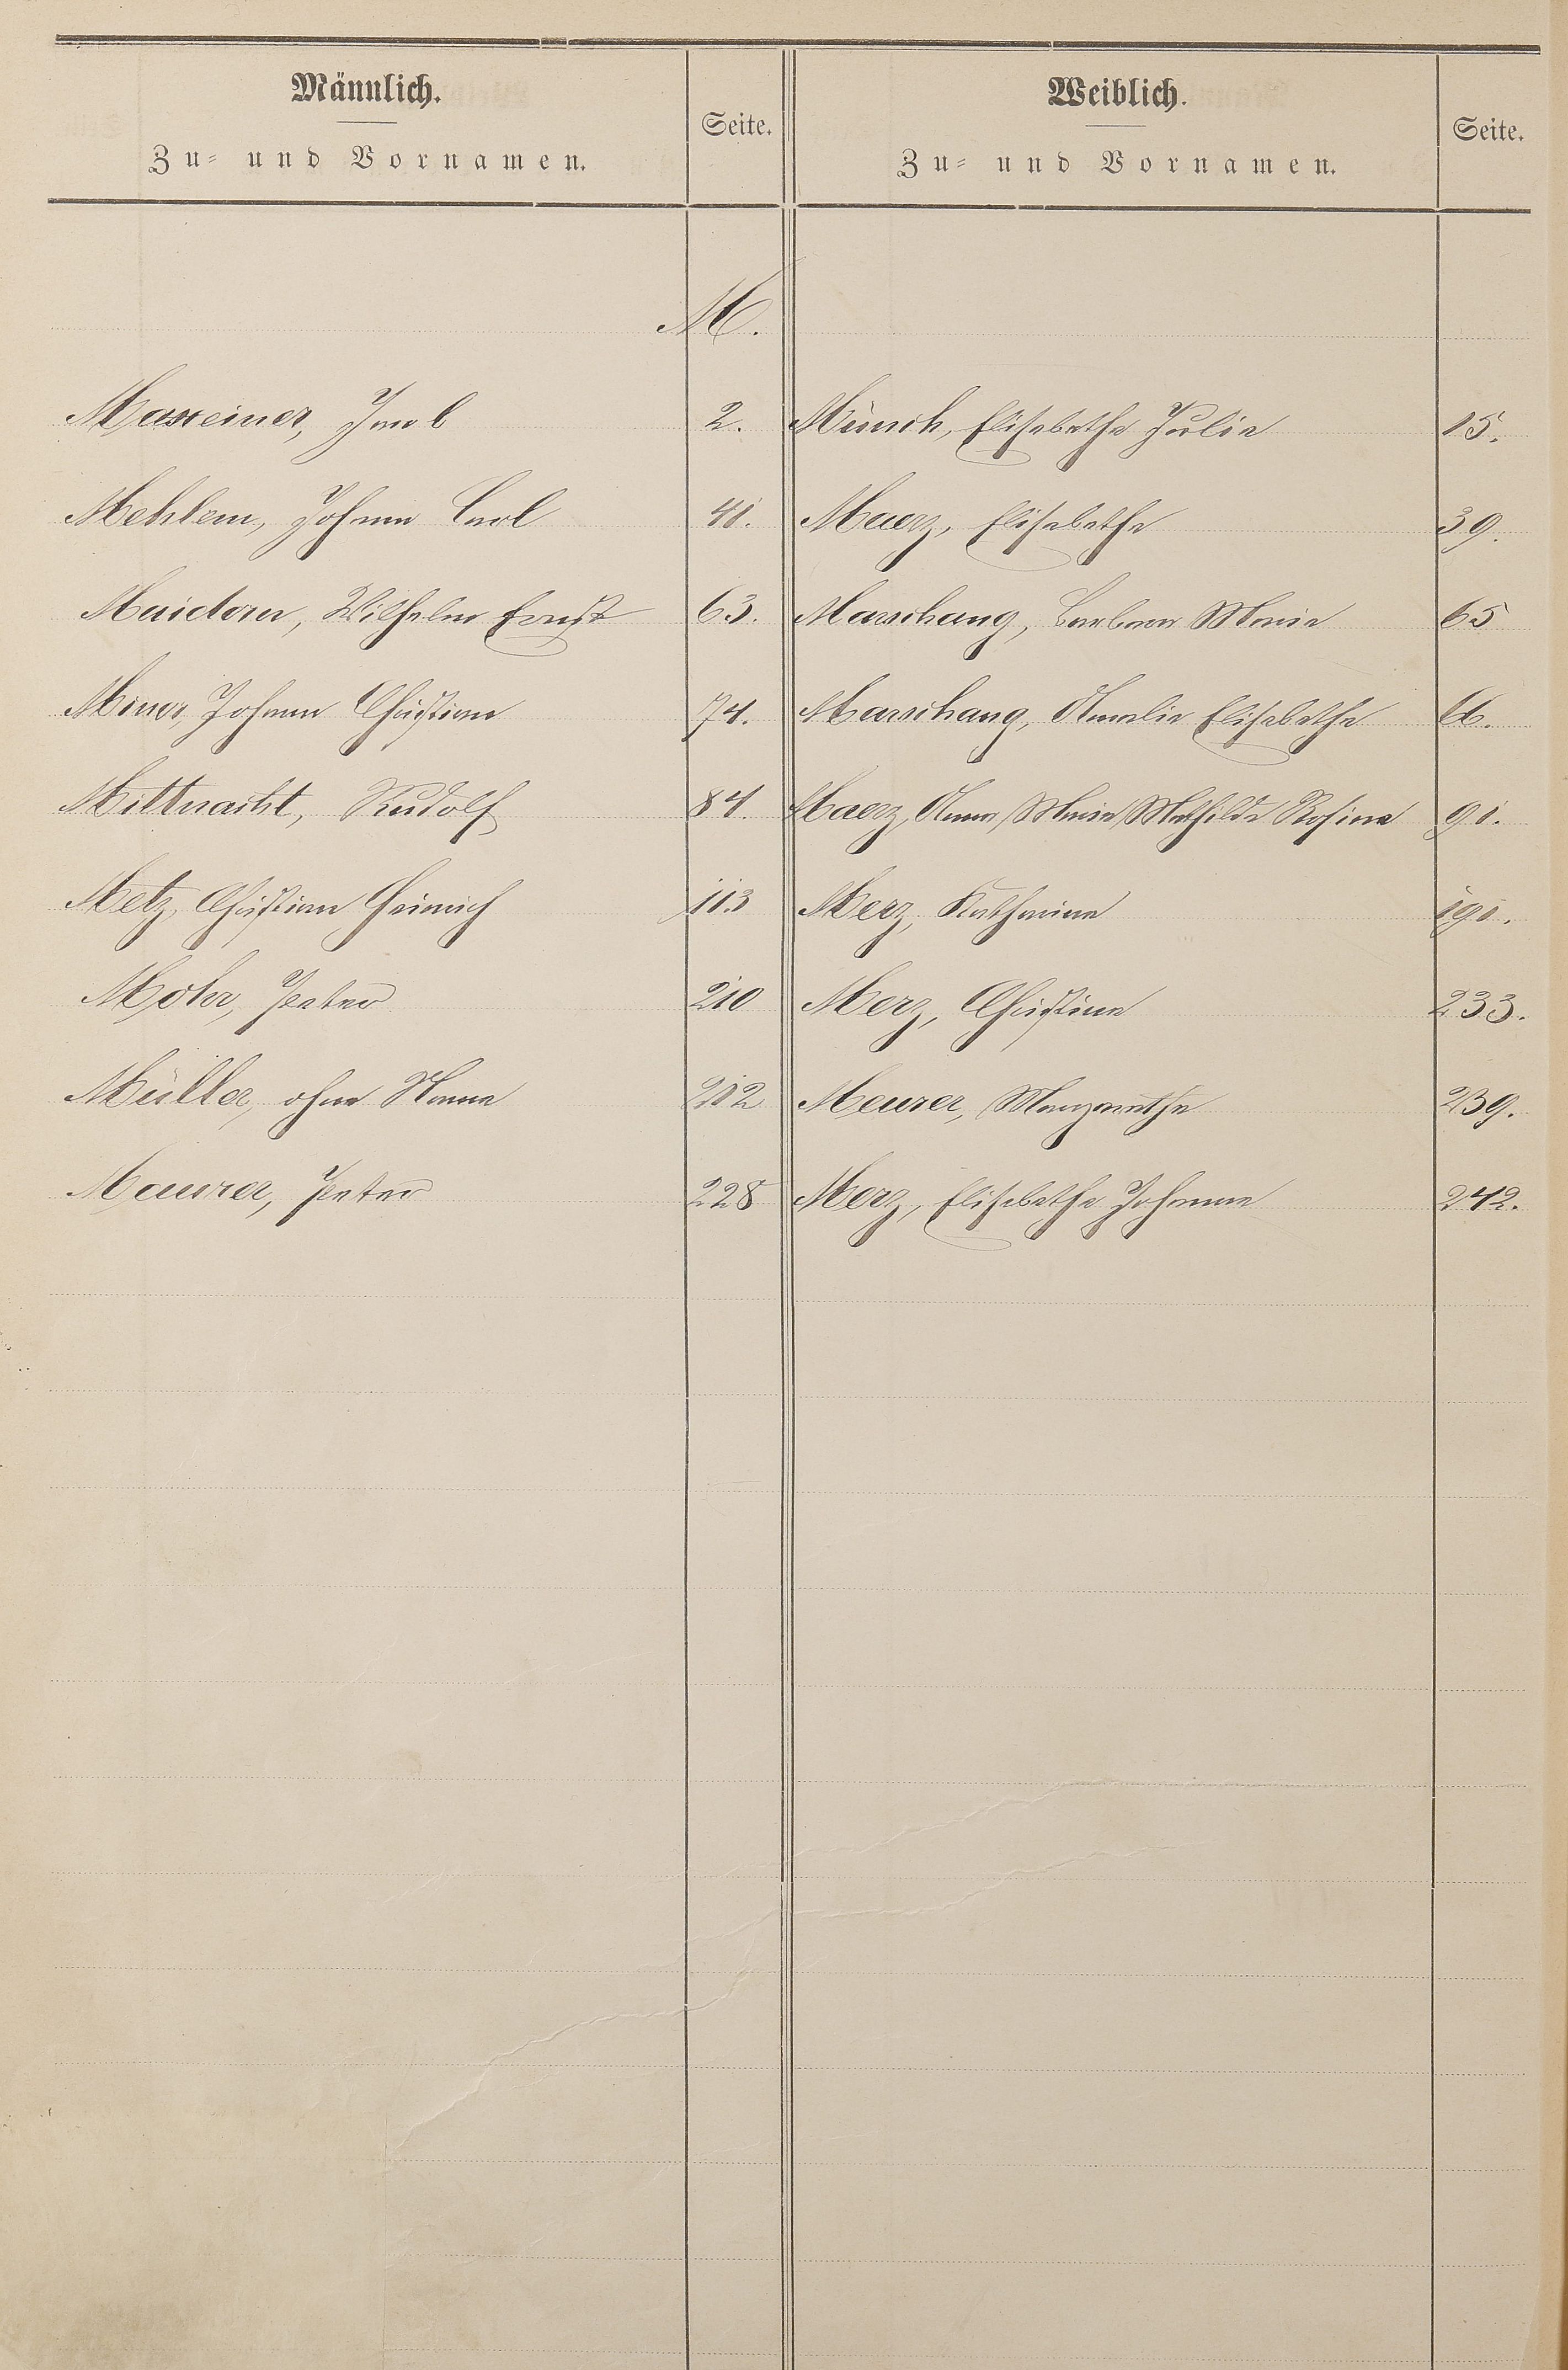 Männlich.
Zu- und Vornamen.
Seite.
Weiblich.
Zu- und Vornamen.
Seite.
M.
Maxeiner, Jacob 2. Münch, Elisabethe Julie 15.
Mehlem, Johann Carl 41. Maerz, Elisabethe 39.
Maidorn, Wilhelm Ernst 63. Marschang, Barbara Marie 65
Johann Christian 74. Marschang, Amalie Elisabethe 66.
Mittnacht, Rudolf 84. Maerz, Anna Marie Mathilde Rosine 91.
Metz, Christian Heinrich 113 Merz, Katharine 191.
Mohr, Peter 210 Merz, Christine 233.
Müller, ohne Name 212 Meurer, Margarethe 239.
Maurer, Peter 228 Merz, Elisabethe Johanna 242.